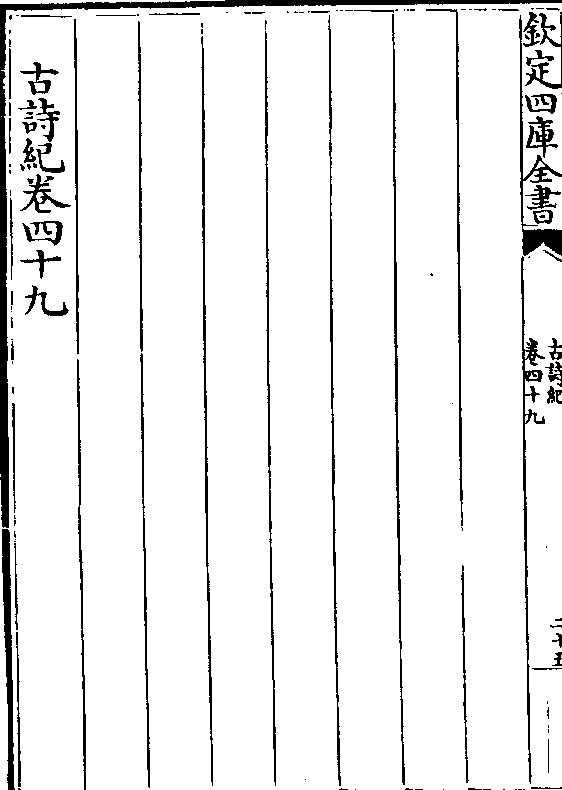 欽定四庫全書
古詩紀
卷四十九
二十五
古詩紀卷四十九